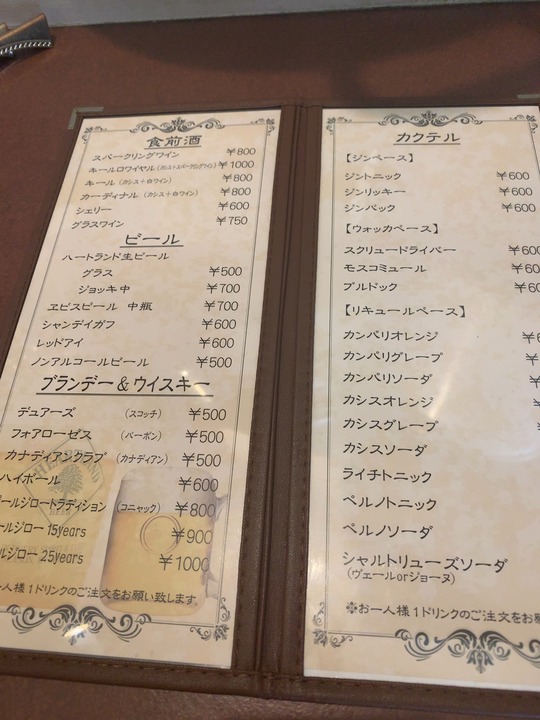 食前酒
スパークリングワイン ¥800
キールロワイヤル (カシス+スパークリングワイン) ¥1000
キール (カシス+白ワイン) ¥800
カーディナル (カシス+白ワイン) ¥800
シェリー ¥600
グラスワイン ¥750
ビール
ハートランド生ビール
グラス ¥500
ジョッキ中 ¥700
ヱビスビール 中瓶 ¥700
シャンデイガフ ¥600
レッドアイ ¥600
ノンアルコールビール ¥500
ブランデー&ウイスキー
デュアーズ (スコッチ) ¥500
フォアローゼス (バーボン) ¥500
カナディアンクラブ (カナディアン) ¥500
ハイボール ¥600
ールジロートラディション (コニャック) ¥800
ールジロー 15years ¥900
ルジロー 25years ¥1000
一人様1ドリンクのご注文をお願い致します。
カクテル
【ジンベース】
ジントニック ¥600
ジンリッキー ¥600
ジンバック ¥600
【ウォッカベース】
スクリュードライバー ¥600
モスコミュール ¥60
ブルドック ¥60
【リキュールベース】
カンパリオレンジ ¥6
カンパリグレープ ¥
カンパリソーダ ¥
カシスオレンジ ¥
カシスグレープ ¥
カシスソーダ
ライチトニック
ペルノトニック
ペルノソーダ
シャルトリューズソーダ
(ヴェールorジョーヌ)
※お一人様1ドリンクのご注文をお願